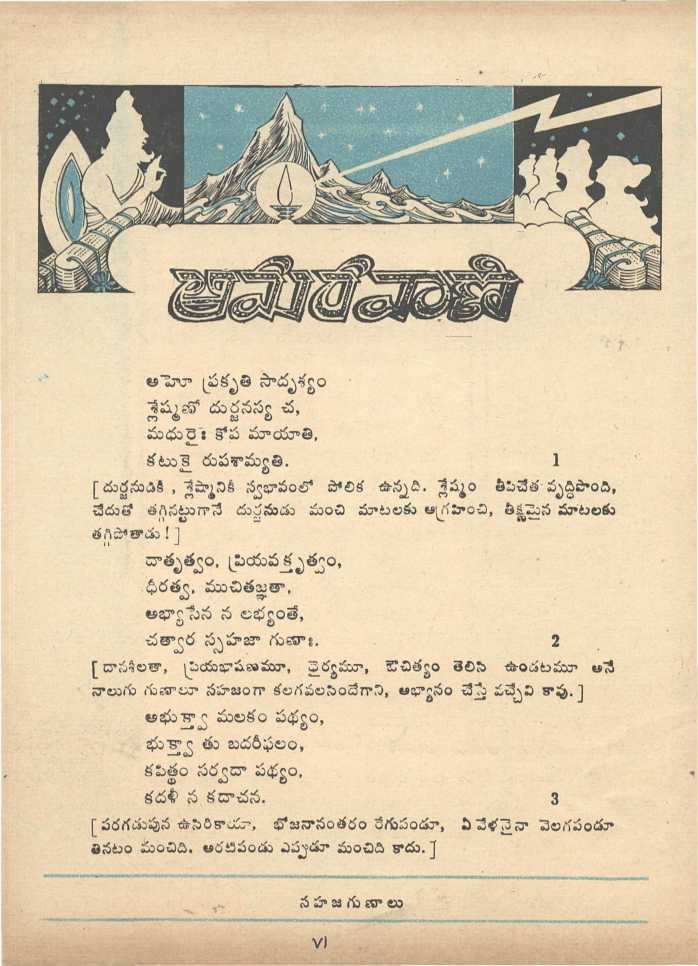 అమరవాణి
అహో ప్రకృతి సాదృశ్యం
శ్లేష్మణో దుర్జనస్య చ,
మధురైః కోప మాయాతి,
కటుకై రుపశామ్యతి. 1
[దుర్జనుడికీ, శ్లేష్మానికీ స్వభావంలో పోలిక ఉన్నది. శ్లేష్మం తీపిచేత వృద్ధిపొంది,
చేదుతో తగ్గినట్టుగానే దుర్జనుడు మంచి మాటలకు ఆగ్రహించి, తీక్ష్ణమైన మాటలకు
తగ్గిపోతాడు!]
దాతృత్వం, ప్రియవక్తృత్వం,
ధీరత్వ, ముచితజ్ఞతా,
అభ్యాసేన న లభ్యంతే,
చత్వార స్సహజా గుణాః. 2
[దానశీలతా, ప్రియభాషణమూ, ధైర్యమూ, ఔచిత్యం తెలిసి ఉండటమూ అనే
నాలుగు గుణాలూ సహజంగా కలగవలసిందేగాని, అభ్యాసం చేస్తే వచ్చేవి కావు.]
అభుక్త్వా మలకం పథ్యం,
భుక్త్వా తు బదరీఫలం,
కపిత్థం సర్వదా పథ్యం,
కదళీ న కదాచన. 3
[పరగడుపున ఉసిరికాయా, భోజనానంతరం రేగుపండూ, ఏ వేళనైనా వెలగపండూ
తినటం మంచిది. అరటిపండు ఎప్పుడూ మంచిది కాదు.]
సహజగుణాలు
VI